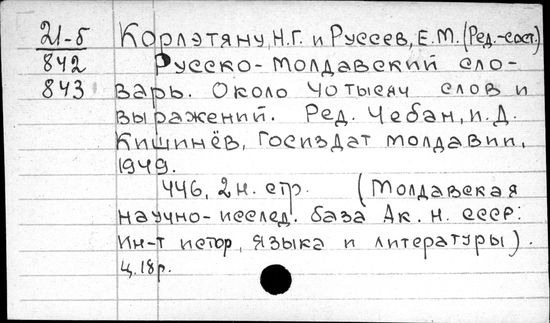 21-б
842
843
Корлэтяну, Н.Г. и Руссев, Е.М. (Ред.-сост.)
Русско-молдавский сло-
варь. Около 40 тысяч слов и
выражений. Ред. Чебан, И.Д.
Кишинёв, Госиздат Молдавии,
1949.
446, 2 н. стр. (Молдавская
научно-исслед. база Ак. н. СССР:
Ин-т истор, языка и литературы).
Ц. 18 р.